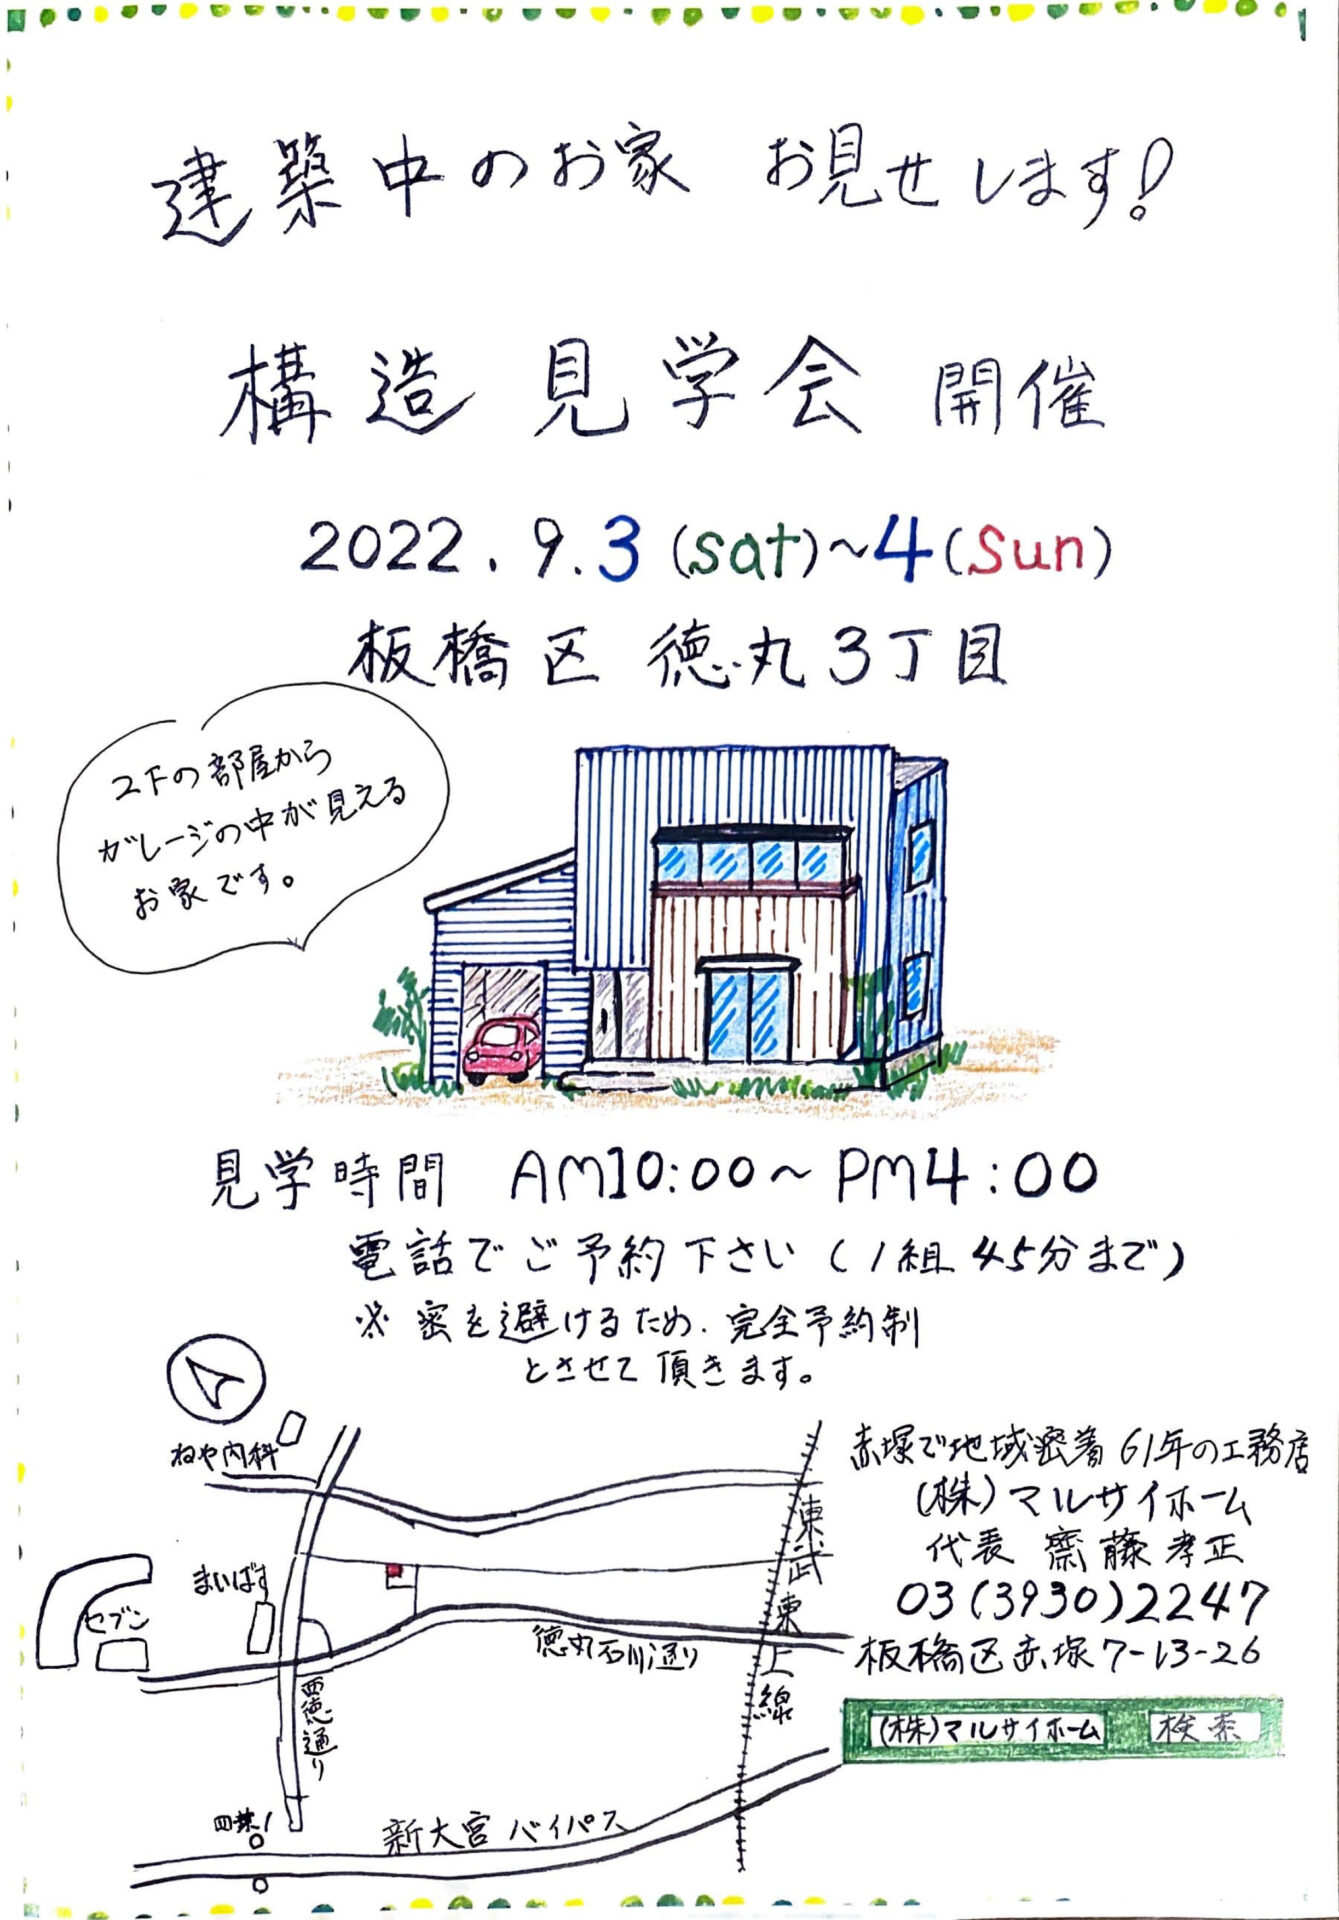 建築中のお家 お見せします!
構造 見学会 開催
2022.9.3(sat)~4(sun)
板橋区 徳丸3丁目
2Fの部屋から
ガレージの中が見える
お家です。
見学時間 AM10:00~PM4:00
電話でご予約下さい(1組45分まで)
※密を避けるため、完全予約制
とさせて頂きます。
ねや内科
まいばす
セブン
西徳通り
四葉1
徳丸石川通り
新大宮バイパス
東武東上線
赤塚で地域密着61年の工務店
(株)マルサイホーム
代表 齋藤孝正
03(3930)2247
板橋区赤塚7-13-26
(株)マルサイホーム 検索